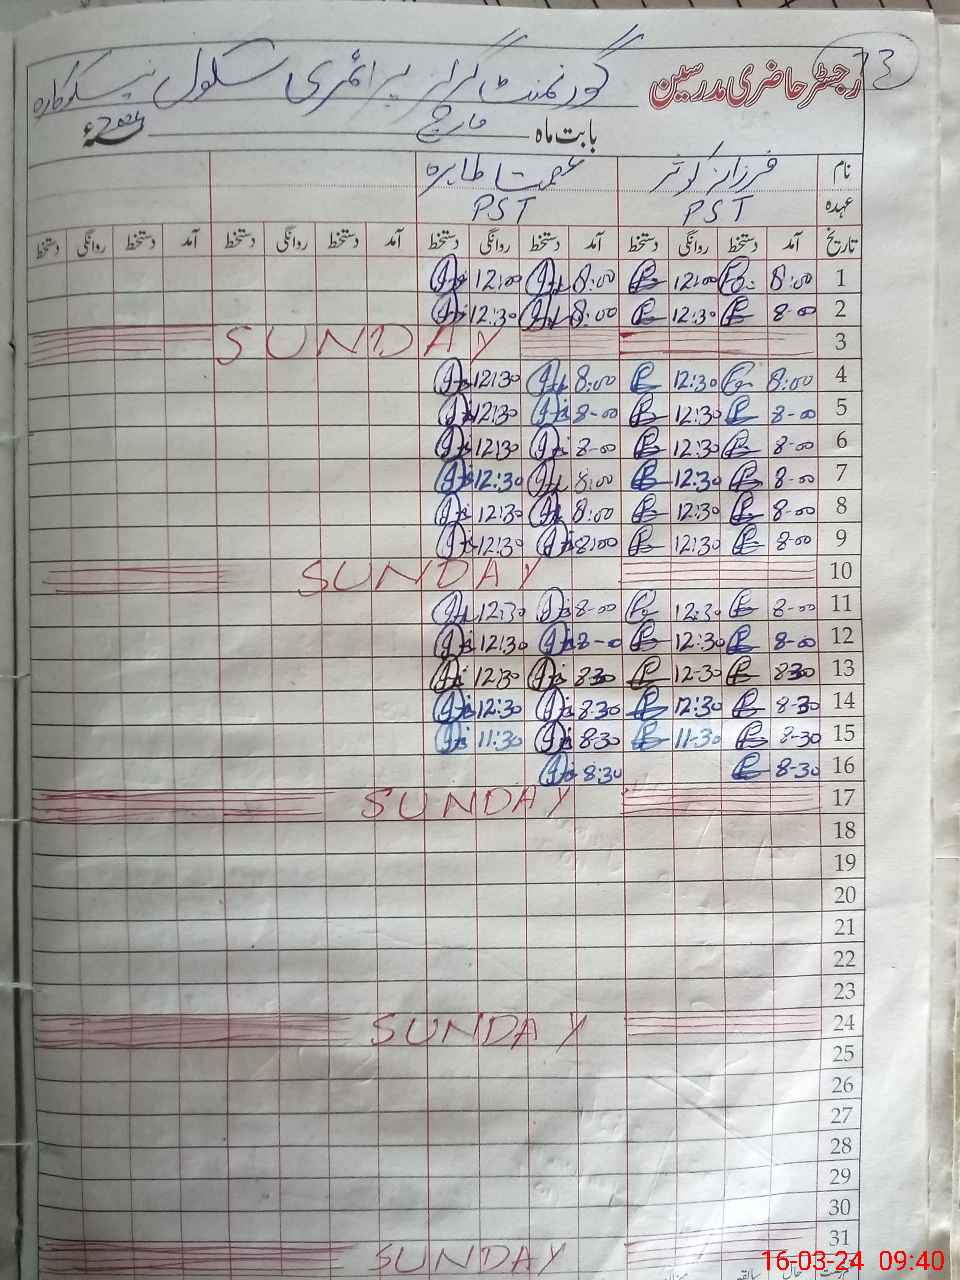 3
رجسٹر حاضری مدرسین گورنمنٹ گرلز پرائمری سکول
بابت ماہ مارچ 2024ء
نام فرزانہ کوثر عصمت طاہرہ
عہدہ PST PST
تاریخ آمد دستخط روانگی دستخط آمد دستخط روانگی دستخط آمد دستخط روانگی دستخط آمد دستخط روانگی دستخط
1 8:00 12:00 8:00 12:00
2 8-00 12:30 8:00 12:30
3 SUNDAY
4 8:00 12:30 8:00 12:30
5 8-00 12:30 8-00 12:30
6 8-00 12:30 8-00 12:30
7 8-00 12:30 8:00 12:30
8 8-00 12:30 8:00 12:30
9 8-00 12:30 8:00 12:30
10 SUNDAY
11 8-00 12:30 8-00 12:30
12 8-00 12:30 8-00 12:30
13 830 12-30 830 12:30
14 8-30 12:30 8-30 12:30
15 8-30 11-30 8-30 11:30
16 8-30 8:30
17 SUNDAY
18
19
20
21
22
23
24 SUNDAY
25
26
27
28
29
30
31 SUNDAY
16-03-24 09:40